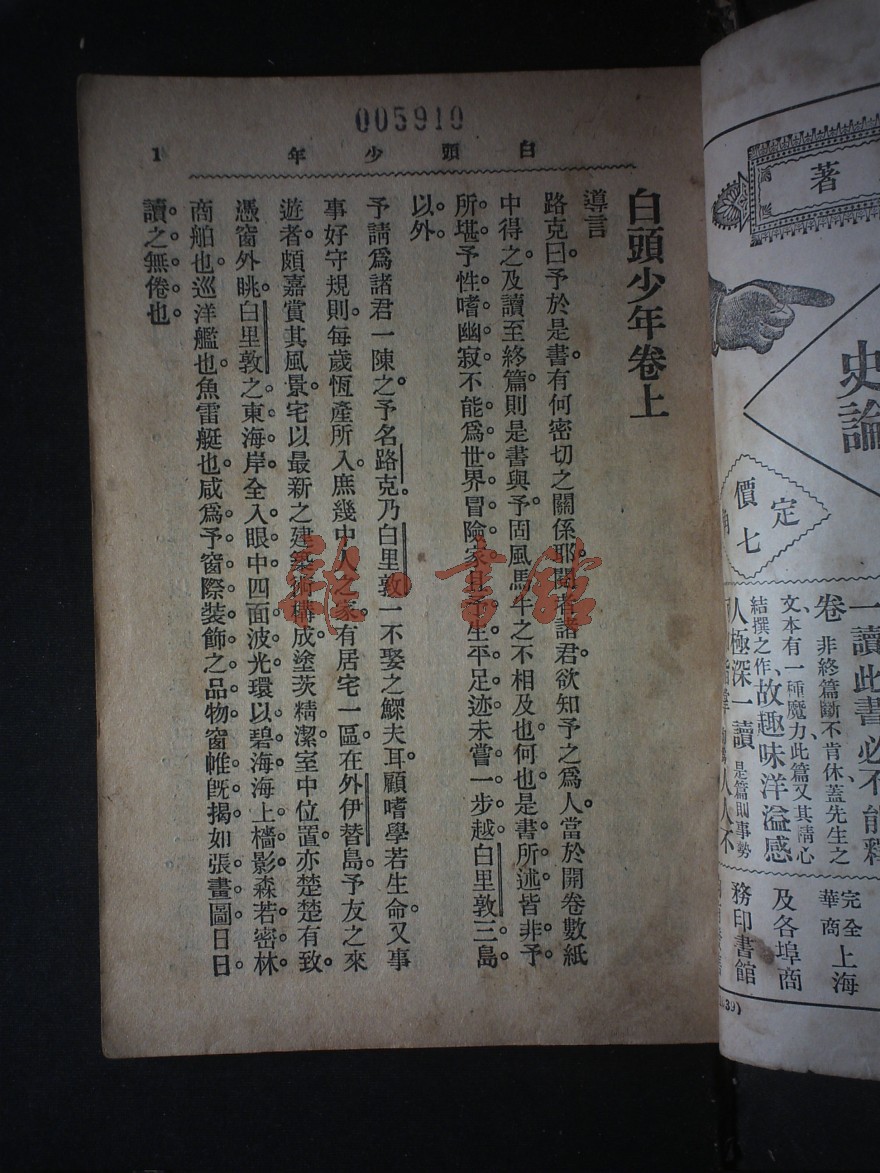 005910
白頭少年
1
白頭少年卷上
導言
路克曰。予於是書。有何密切之關係耶。閱者諸君。欲知予之爲人。當於開卷數紙
中得之。及讀至終篇。則是書與予固風馬牛之不相及也。何也。是書所述。皆非予
所堪。予性嗜幽寂。不能爲世界冒險家。且予生平足迹。未嘗一步越白里敦三島
以外。
予請爲諸君一陳之。予名路克。乃白里敦一不娶之鰥夫耳。顧嗜學若生命。又事
事好守規則。每歲恆產所入。庶幾中人之家。有居宅一區。在外伊替島。予友之來
遊者。頗嘉賞其風景。宅以最新之建築術構成。塗茨精潔。室中位置。亦楚楚有致。
憑窗外眺。白里敦之東海岸。全入眼中。四面波光。環以碧海。海上檣影。森若密林。
商舶也。巡洋艦也。魚雷艇也。咸爲予窗際裝飾之品物。窗帷旣揭。如張畫圖。日日
讀之無倦也。
雅書館
著
史論
定
價
七
一讀此書必不能釋
卷
非終篇斷不肯休蓋先生之
文本有一種魔力此篇又其精心
結撰之作
故趣味洋溢感
人極深一讀
是篇則事勢
完全
華商
上海
及各埠商
務印書館